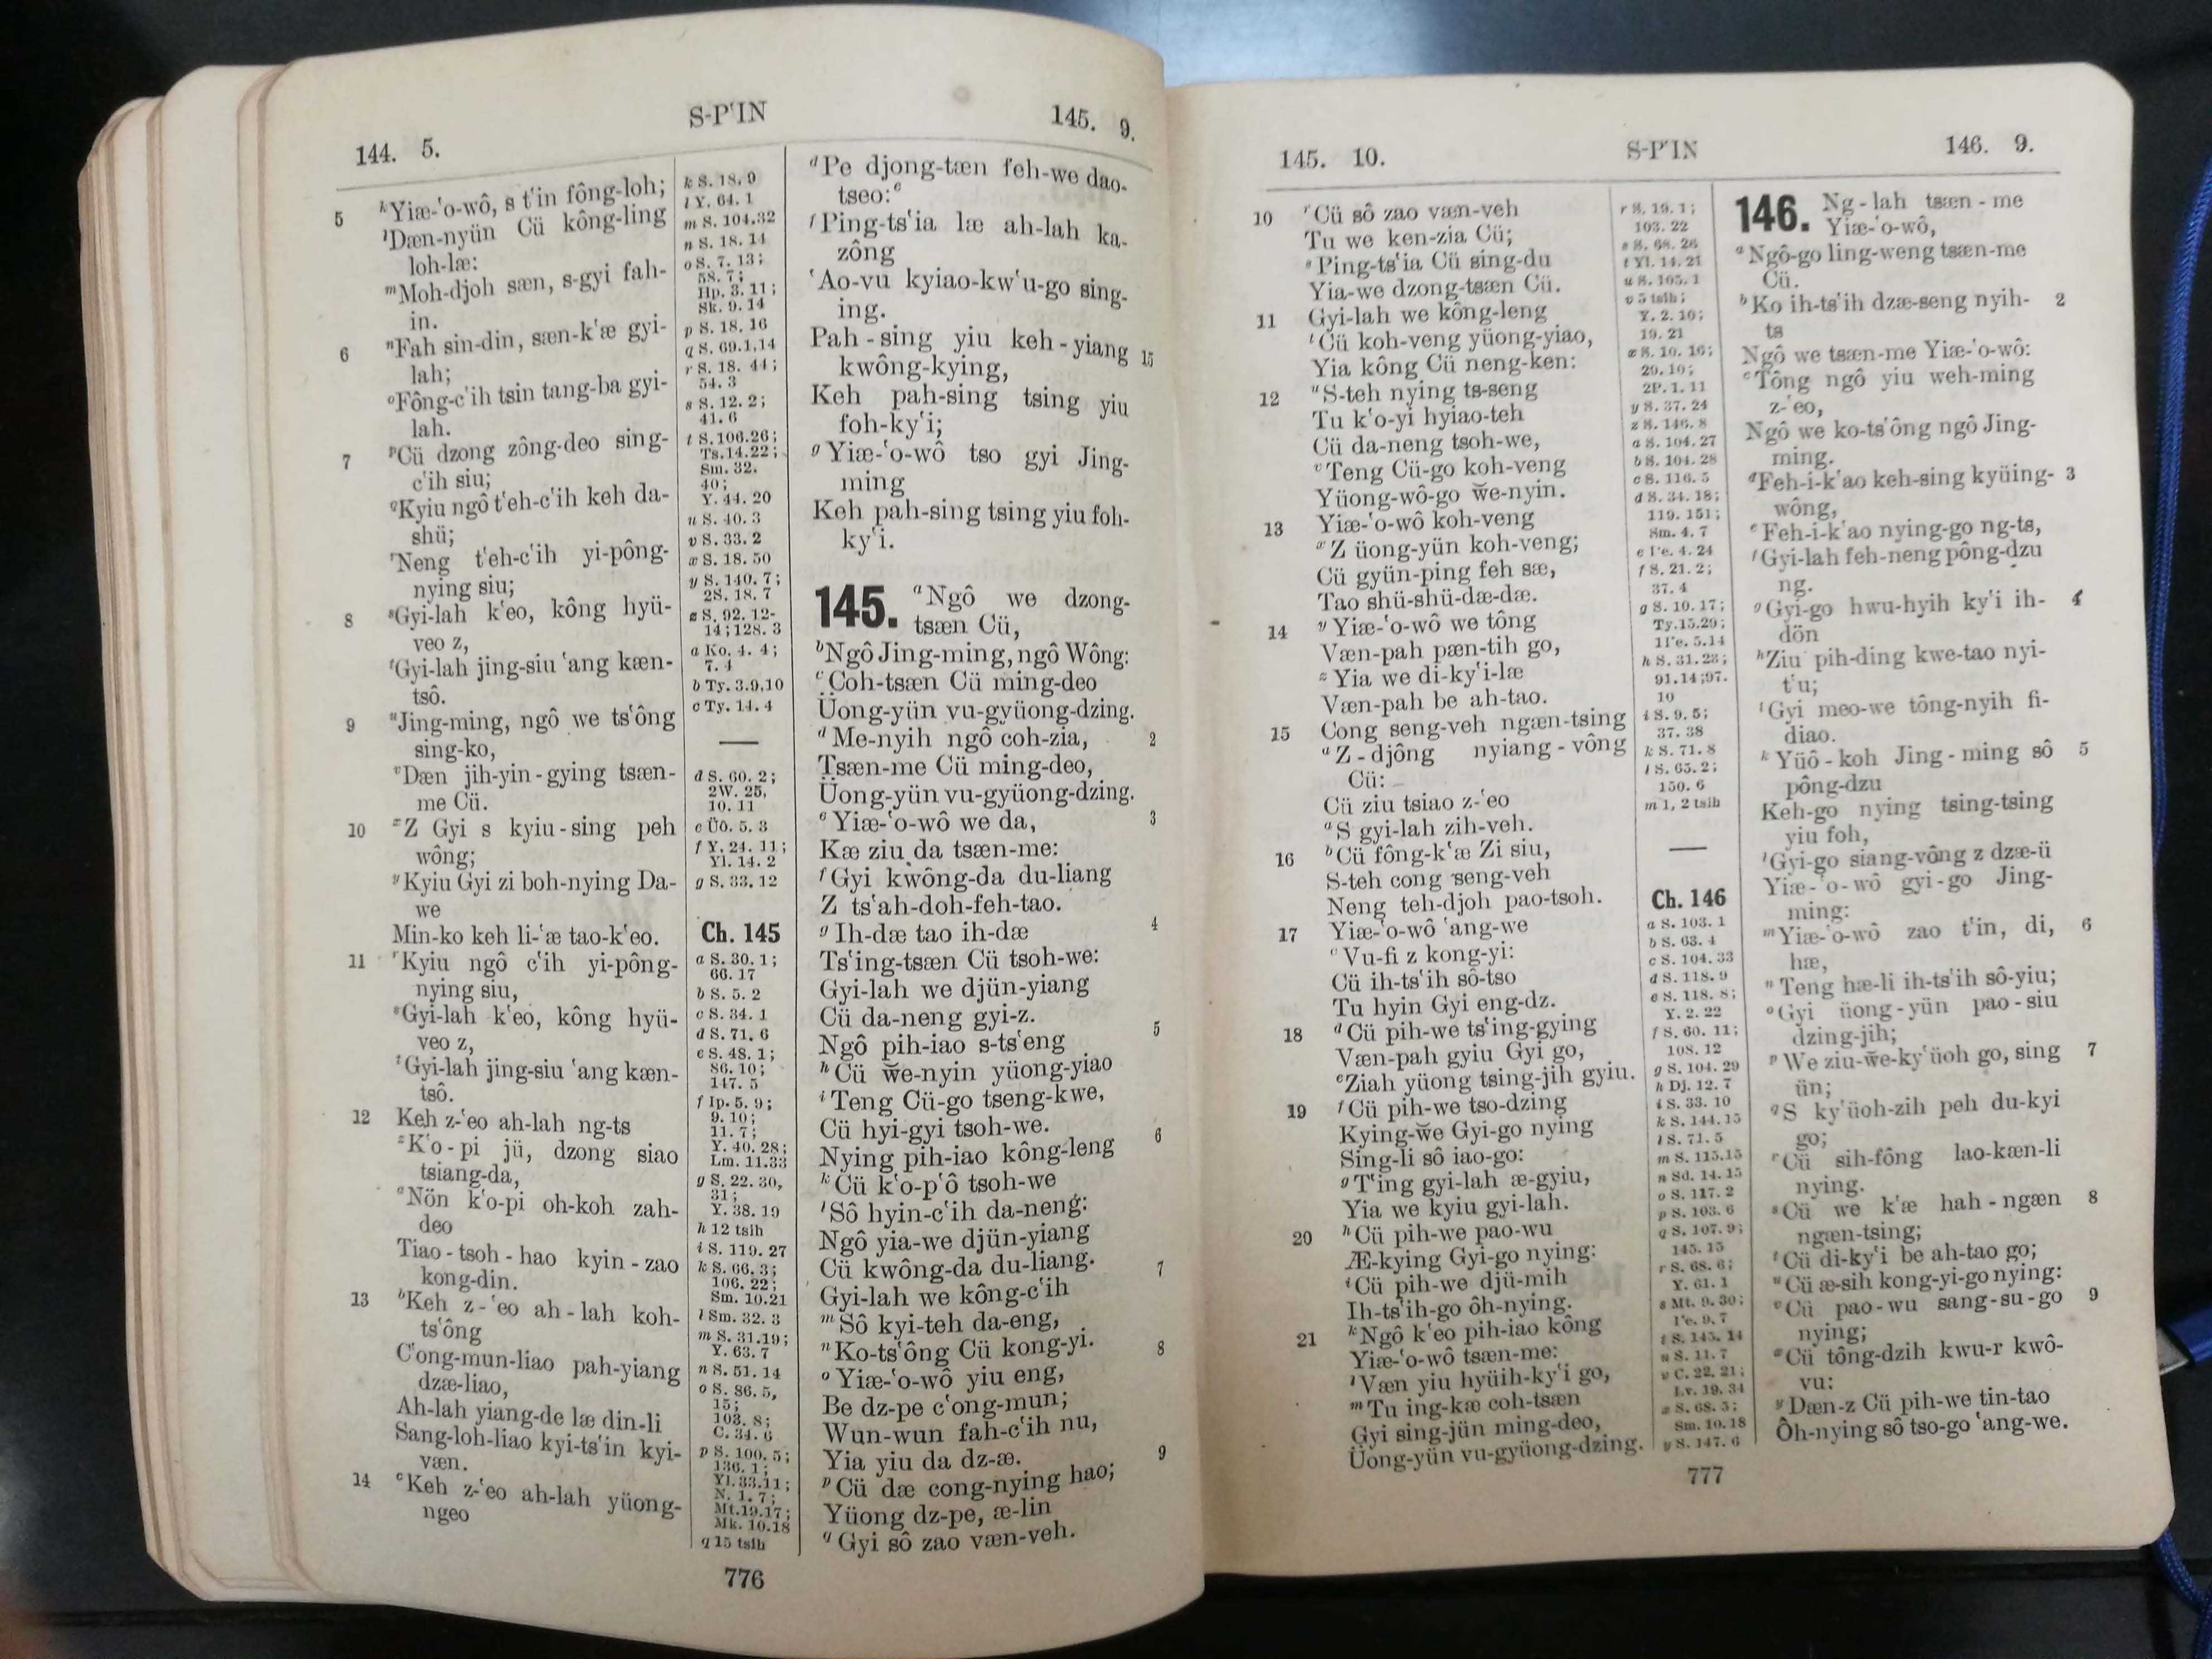 144. 5.
S-PʽIN
145. 9.
5 ᵏYiæ-ʽo-wô, s tʽin fông-loh;
ˡDæn-nyün Cü kông-ling
loh-læ:
ᵐMoh-djoh sæn, s-gyi fah-
in.
6 ⁿFah sin-din, sæn-kʽæ gyi-
lah;
ᵒFông-cʽih tsin tang-ba gyi-
lah.
7 ᵖCü dzong zông-deo sing-
cʽih siu;
ᑫKyiu ngô tʽeh-cʽih keh da-
shü;
ʳNeng tʽeh-cʽih yi-pông-
nying siu;
8 ˢGyi-lah kʽeo, kông hyü-
veo z,
ᵗGyi-lah jing-siu ʽang kæn-
tsô.
9 ᵘJing-ming, ngô we tsʽông
sing-ko,
ᵛDæn jih-yin-gying tsæn-
me Cü.
10 ˣZ Gyi s kyiu-sing peh
wông;
ʸKyiu Gyi zi boh-nying Da-
we
Min-ko keh li-ʽæ tao-kʽeo.
11 ʳKyiu ngô cʽih yi-pông-
nying siu,
ˢGyi-lah kʽeo, kông hyü-
veo z,
ᵗGyi-lah jing-siu ʽang kæn-
tsô.
12 Keh z-ʽeo ah-lah ng-ts
ᶻKʽo-pi jü, dzong siao
tsiang-da,
ᵃNön kʽo-pi oh-koh zah-
deo
Tiao-tsoh-hao kyin-zao
kong-din.
13 ᵇKeh z-ʽeo ah-lah koh-
tsʽông
Cʽong-mun-liao pah-yiang
dzæ-liao,
Ah-lah yiang-de læ din-li
Sang-loh-liao kyi-tsʽin kyi-
væn.
14 ᶜKeh z-ʽeo ah-lah yüong-
ngeo
k S. 18. 9
l Y. 64. 1
m S. 104.32
n S. 18. 14
o S. 7. 13;
58. 7;
Hp. 3. 11;
Sk. 9. 14
p S. 18. 16
q S. 69.1,14
r S. 18. 44;
54. 3
s S. 12. 2;
41. 6
t S. 106.26;
Ts.14.22;
Sm. 32.
40;
Y. 44. 20
u S. 40. 3
v S. 33. 2
x S. 18. 50
y S. 140. 7;
2S. 18. 7
z S. 92. 12-
14; 128. 3
a Ko. 4. 4;
7. 4
b Ty. 3.9,10
c Ty. 14. 4
d S. 60. 2;
2W. 25,
10. 11
e Üô. 5. 3
f Y. 24. 11;
Yl. 14. 2
g S. 33. 12
Ch. 145
a S. 30. 1;
66. 17
b S. 5. 2
c S. 34. 1
d S. 71. 6
e S. 48. 1;
86. 10;
147. 5
f Ip. 5. 9;
9. 10;
11. 7;
Y. 40. 28;
Lm. 11.33
g S. 22. 30,
31;
Y. 38. 19
h 12 tsih
i S. 119. 27
k S. 66. 3;
106. 22;
Sm. 10.21
l Sm. 32. 3
m S. 31.19;
Y. 63. 7
n S. 51. 14
o S. 86. 5,
15;
103. 8;
C. 34. 6
p S. 100. 5;
136. 1;
Yl. 33.11;
N. 1. 7;
Mt.19.17;
Mk. 10.18
q 15 tsih
ᵈPe djong-tæn feh-we dao-
tseo:ᵉ
ᶠPing-tsʽia læ ah-lah ka-
zông
ʽAo-vu kyiao-kwʽu-go sing-
ing.
Pah-sing yiu keh-yiang 15
kwông-kying,
Keh pah-sing tsing yiu
foh-kyʽi;
ᵍYiæ-ʽo-wô tso gyi Jing-
ming
Keh pah-sing tsing yiu foh-
kyʽi.
145. ᵃNgô we dzong-
tsæn Cü,
ᵇNgô Jing-ming, ngô Wông:
ᶜCoh-tsæn Cü ming-deo
Üong-yün vu-gyüong-dzing.
ᵈMe-nyih ngô coh-zia, 2
Tsæn-me Cü ming-deo,
Üong-yün vu-gyüong-dzing.
ᵉYiæ-ʽo-wô we da, 3
Kæ ziu da tsæn-me:
ᶠGyi kwông-da du-liang
Z tsʽah-doh-feh-tao.
ᵍIh-dæ tao ih-dæ 4
Tsʽing-tsæn Cü tsoh-we:
Gyi-lah we djün-yiang
Cü da-neng gyi-z.
Ngô pih-iao s-tsʽeng 5
ʰCü w̌e-nyin yüong-yiao
ⁱTeng Cü-go tseng-kwe,
Cü hyi-gyi tsoh-we.
Nying pih-iao kông-leng 6
ᵏCü kʽo-pʽô tsoh-we
ˡSô hyin-cʽih da-neng:
Ngô yia-we djün-yiang
Cü kwông-da du-liang.
Gyi-lah we kông-cʽih 7
ᵐSô kyi-teh da-eng,
ⁿKo-tsʽông Cü kong-yi.
ᵒYiæ-ʽo-wô yiu eng, 8
Be dz-pe cʽong-mun;
Wun-wun fah-cʽih nu,
Yia yiu da dz-æ.
ᵖCü dæ cong-nying hao; 9
Yüong dz-pe, æ-lin
ᑫGyi sô zao væn-veh.
776
145. 10.
S-PʽIN
146. 9.
10 ʳCü sô zao væn-veh
Tu we ken-zia Cü;
ˢPing-tsʽia Cü sing-du
Yia-we dzong-tsæn Cü.
11 Gyi-lah we kông-leng
ᵗCü koh-veng yüong-yiao,
Yia kông Cü neng-ken:
12 ᵘS-teh nying ts-seng
Tu kʽo-yi hyiao-teh
Cü da-neng tsoh-we,
ᵛTeng Cü-go koh-veng
Yüong-wô-go w̌e-nyin.
13 Yiæ-ʽo-wô koh-veng
ˣZ üong-yün koh-veng;
Cü gyün-ping feh sæ,
Tao shü-shü-dæ-dæ.
14 ʸYiæ-ʽo-wô we tông
Væn-pah pæn-tih go,
ᶻYia we di-kyʽi-læ
Væn-pah be ah-tao.
15 Cong seng-veh ngæn-tsing
ᵃZ-djông nyiang-vông
Cü:
Cü ziu tsiao z-ʽeo
ᵃS gyi-lah zih-veh.
16 ᵇCü fông-kʽæ Zi siu,
S-teh cong seng-veh
Neng teh-djoh pao-tsoh.
17 Yiæ-ʽo-wô ʽang-we
ᶜVu-fi z kong-yi:
Cü ih-tsʽih sô-tso
Tu hyin Gyi eng-dz.
18 ᵈCü pih-we tsʽing-gying
Væn-pah gyiu Gyi go,
ᵉZiah yüong tsing-jih gyiu.
19 ᶠCü pih-we tso-dzing
Kying-w̌e Gyi-go nying
Sing-li sô iao-go:
ᵍTʽing gyi-lah æ-gyiu,
Yia we kyiu gyi-lah.
20 ʰCü pih-we pao-wu
Æ-kying Gyi-go nying:
ⁱCü pih-we djü-mih
Ih-tsʽih-go ôh-nying.
21 ᵏNgô kʽeo pih-iao kông
Yiæ-ʽo-wô tsæn-me:
ˡVæn yiu hyüih-kyʽi go,
ᵐTu ing-kæ coh-tsæn
Gyi sing-jün ming-deo,
Üong-yün vu-gyüong-dzing.
r S. 19. 1;
103. 22
s S. 68. 26
t Yl. 14. 21
u S. 105. 1
v 5 tsih;
Y. 2. 10;
19. 21
x S. 10. 16;
29. 10;
2P. 1. 11
y S. 37. 24
z S. 146. 8
a S. 104. 27
b S. 104. 28
c S. 116. 5
d S. 34. 18;
119. 151;
Sm. 4. 7
e Iʽe. 4. 24
f S. 21. 2;
37. 4
g S. 10. 17;
Ty.15.29;
1Iʽe. 5.14
h S. 31. 23;
91.14;97.
10
i S. 9. 5;
37. 38
k S. 71. 8
l S. 65. 2;
150. 6
m 1, 2 tsih
Ch. 146
a S. 103. 1
b S. 63. 4
c S. 104. 33
d S. 118. 9
e S. 118. 8;
Y. 2. 22
f S. 60. 11;
108. 12
g S. 104. 29
h Dj. 12. 7
i S. 33. 10
k S. 144. 15
l S. 71. 5
m S. 115.15
n Sd. 14. 15
o S. 117. 2
p S. 103. 6
q S. 107. 9;
145. 15
r S. 68. 6;
Y. 61. 1
s Mt. 9. 30;
Iʽe. 9. 7
t S. 145. 14
u S. 11. 7
v C. 22. 21;
Lv. 19. 34
x S. 68. 5;
Sm. 10. 18
y S. 147. 6
146. Ng-lah tsæn-me
Yiæ-ʽo-wô,
ᵃNgô-go ling-weng tsæn-me
Cü.
ᵇKo ih-tsʽih dzæ-seng nyih- 2
ts
Ngô we tsæn-me Yiæ-ʽo-wô:
ᶜTông ngô yiu weh-ming
z-ʽeo,
Ngô we ko-tsʽông ngô Jing-
ming.
ᵈFeh-i-kʽao keh-sing kyüing- 3
wông,
ᵉFeh-i-kʽao nying-go ng-ts,
ᶠGyi-lah feh-neng pông-dzu
ng.
ᵍGyi-go hwu-hyih kyʽi ih- 4
dön
ʰZiu pih-ding kwe-tao nyi-
tʽu;
ⁱGyi meo-we tông-nyih fi-
diao.
ᵏYüô-koh Jing-ming sô 5
pông-dzu
Keh-go nying tsing-tsing
yiu foh,
ˡGyi-go siang-vông z dzæ-ü
Yiæ-ʽo-wô gyi-go Jing-
ming:
ᵐYiæ-ʽo-wô zao tʽin, di, 6
hæ,
ⁿTeng hæ-li ih-tsʽih sô-yiu;
ᵒGyi üong-yün pao-siu
dzing-jih;
ᵖWe ziu-w̌e-kyʽüoh go, sing 7
ün;
ᑫS kyʽüoh-zih peh du-kyi
go;
ʳCü sih-fông lao-kæn-li
nying.
ˢCü we kʽæ hah-ngæn 8
ngæn-tsing;
ᵗCü di-kyʽi be ah-tao go;
ᵘCü æ-sih kong-yi-go nying:
ᵛCü pao-wu sang-su-go 9
nying;
ˣCü tông-dzih kwu-r kwô-
vu:
ʸDæn-z Cü pih-we tin-tao
Ôh-nying sô tso-go ʽang-we.
777